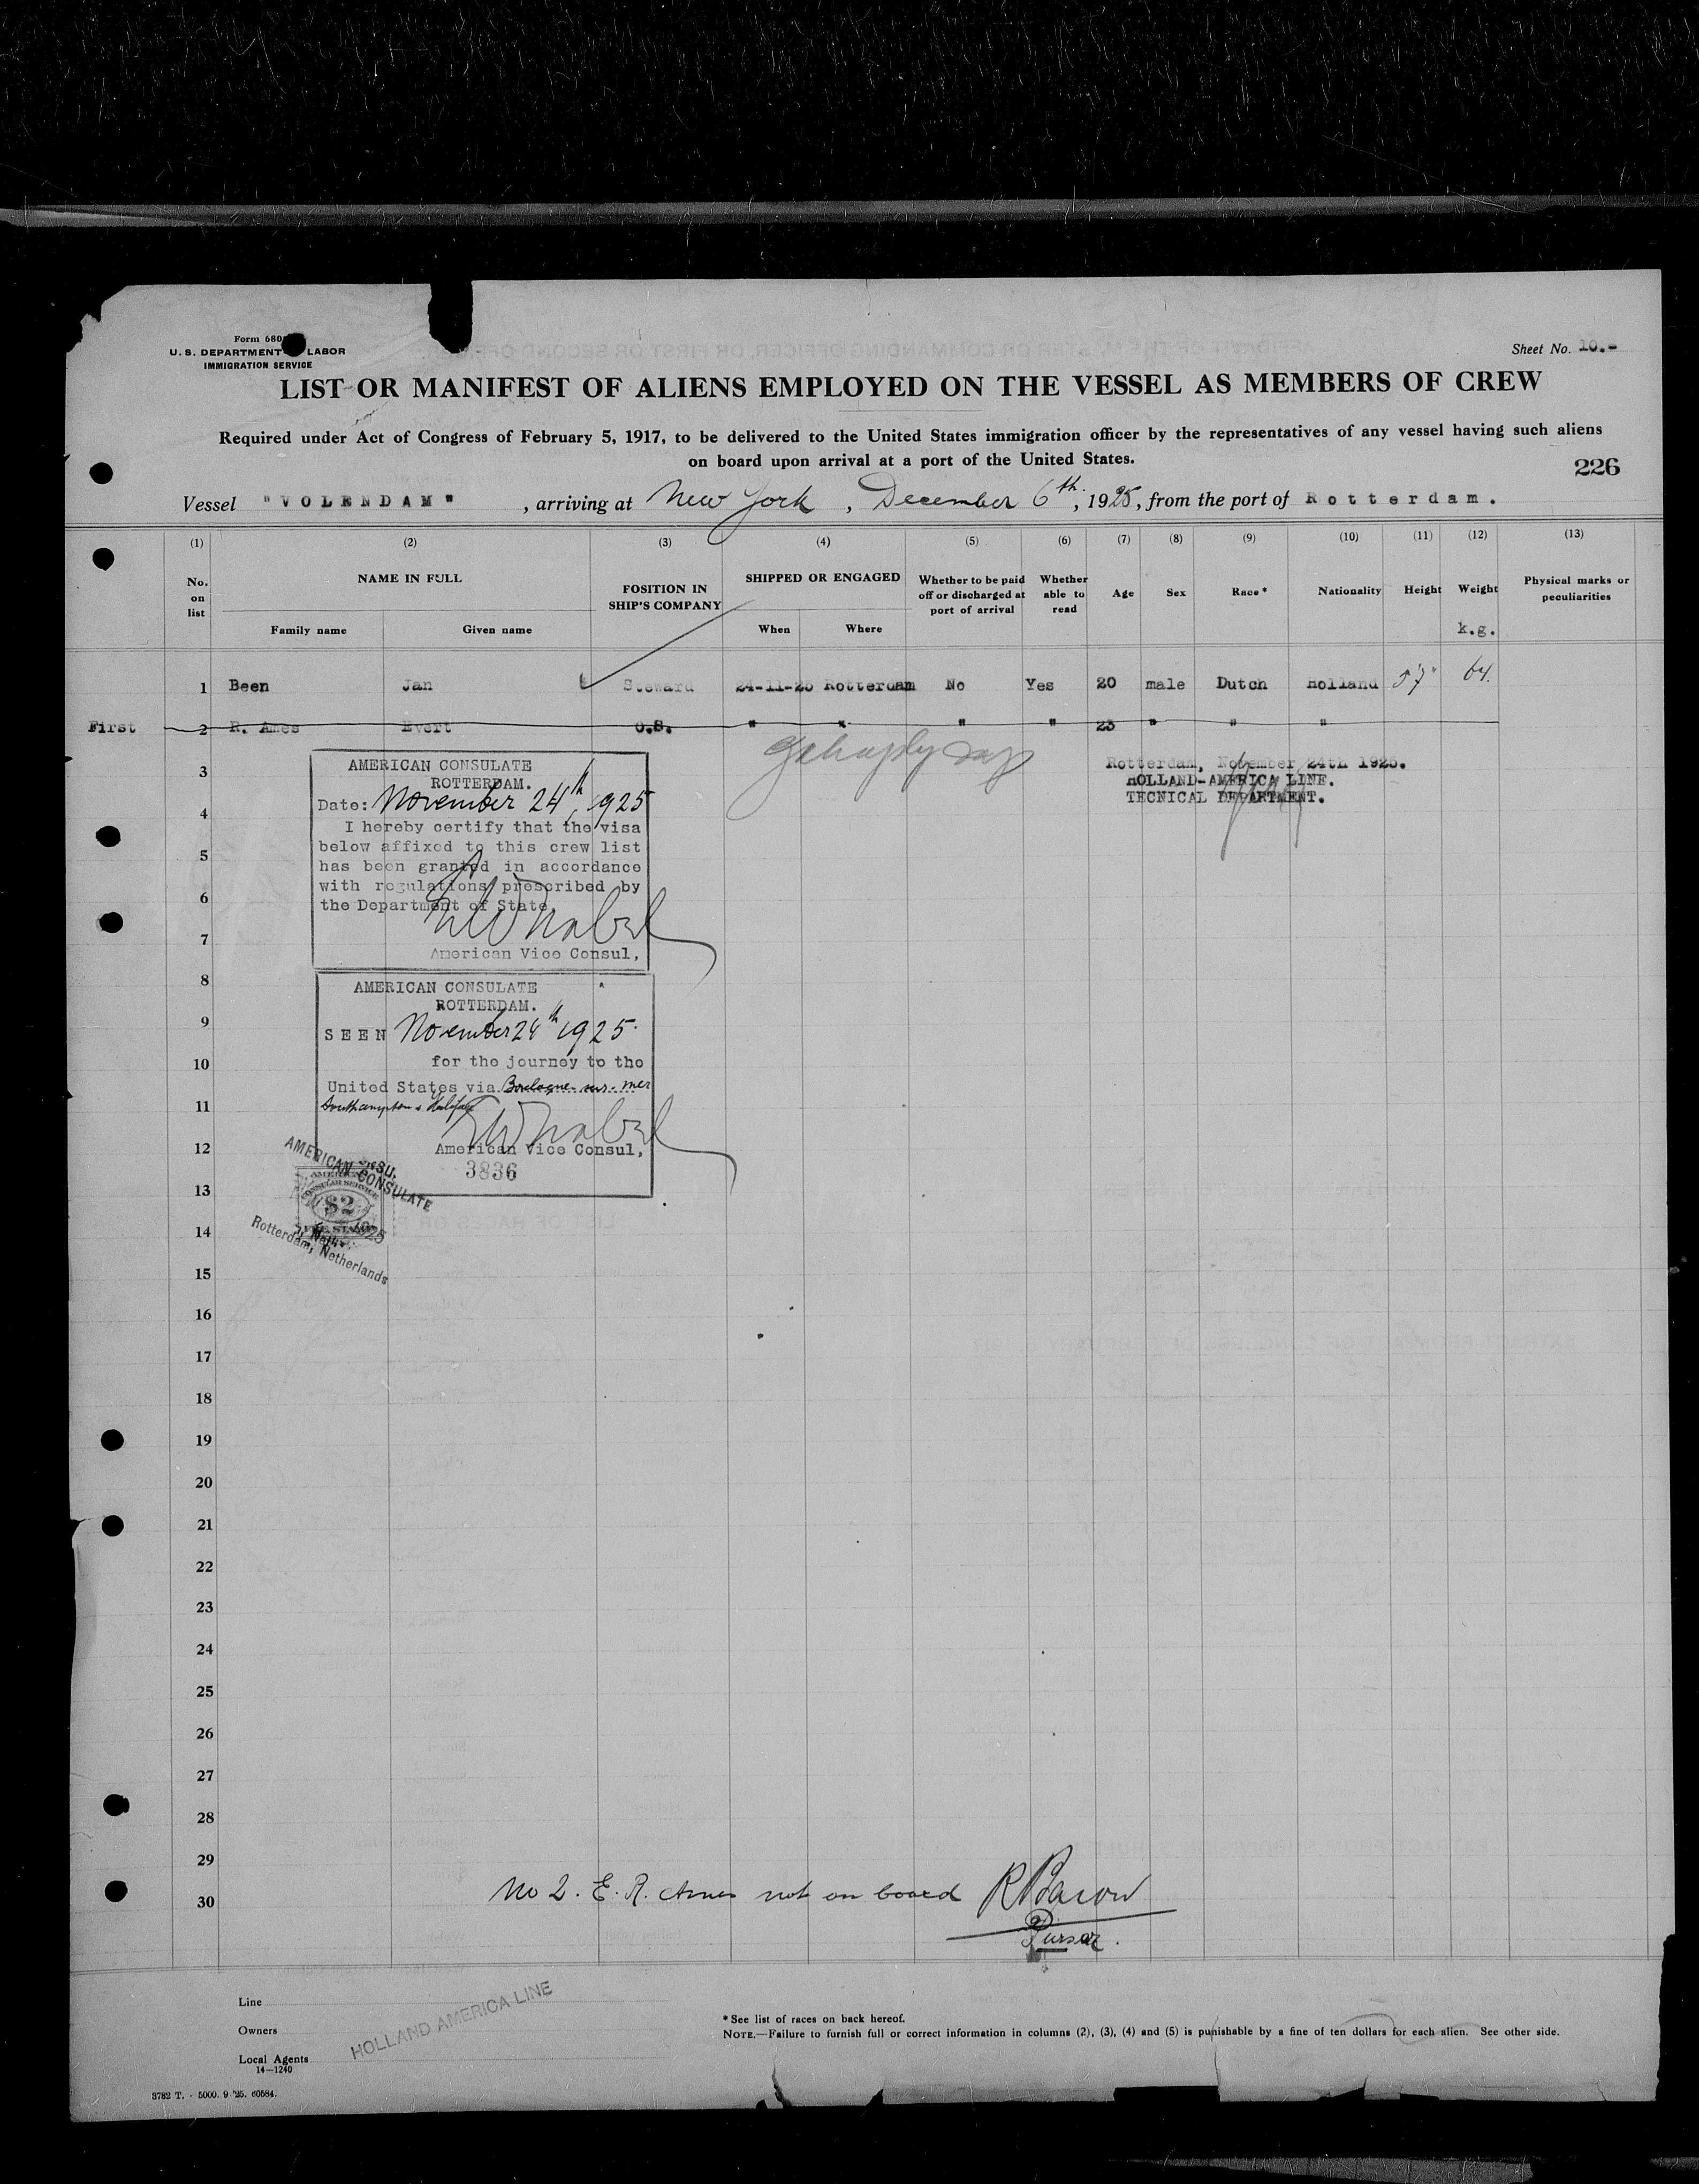 Form 680
U. S. DEPARTMENT LABOR
IMMIGRATION SERVICE
Sheet No. 10.-
LIST OR MANIFEST OF ALIENS EMPLOYED ON THE VESSEL AS MEMBERS OF CREW
Required under Act of Congress of February 5, 1917, to be delivered to the United States immigration officer by the representatives of any vessel having such aliens
on board upon arrival at a port of the United States.
226
Vessel "VOLENDAM", arriving at New York, December 6th, 1925, from the port of Rotterdam.
(1) (2) (3) (4) (5) (6) (7) (8) (9) (10) (11) (12) (13)
No. on list NAME IN FULL POSITION IN SHIP'S COMPANY SHIPPED OR ENGAGED Whether to be paid off or discharged at port of arrival Whether able to read Age Sex Race* Nationality Height Weight Physical marks or peculiarities
Family name Given name When Where k.g.
1 Been Jan Steward 24-11-25 Rotterdam No Yes 20 male Dutch Holland 5'7" 64.
First 2 R. Ames Evert O.S. " " " " 23 " " "
3
4
5
6
7
8
9
10
11
12
13
14
15
16
17
18
19
20
21
22
23
24
25
26
27
28
29
30
AMERICAN CONSULATE
ROTTERDAM.
Date: November 24th, 1925
I hereby certify that the visa
below affixed to this crew list
has been granted in accordance
with regulations prescribed by
the Department of State.
American Vice Consul,
Rotterdam, November 24th 1925.
HOLLAND-AMERICA LINE.
TECNICAL DEPARTMENT.
AMERICAN CONSULATE
ROTTERDAM.
SEEN November 24th 1925.
for the journey to the
United States via Boulogne-sur-mer
Southampton & Halifax
American Vice Consul,
3836
AMERICAN CONSULATE
$2
Rotterdam, Netherlands
No 2. E. R. Ames not on board
Purser.
Line
Owners
Local Agents
HOLLAND AMERICA LINE
14—1240
* See list of races on back hereof.
NOTE.—Failure to furnish full or correct information in columns (2), (3), (4) and (5) is punishable by a fine of ten dollars for each alien. See other side.
3782 T. - 5000. 9 '25. 60584.